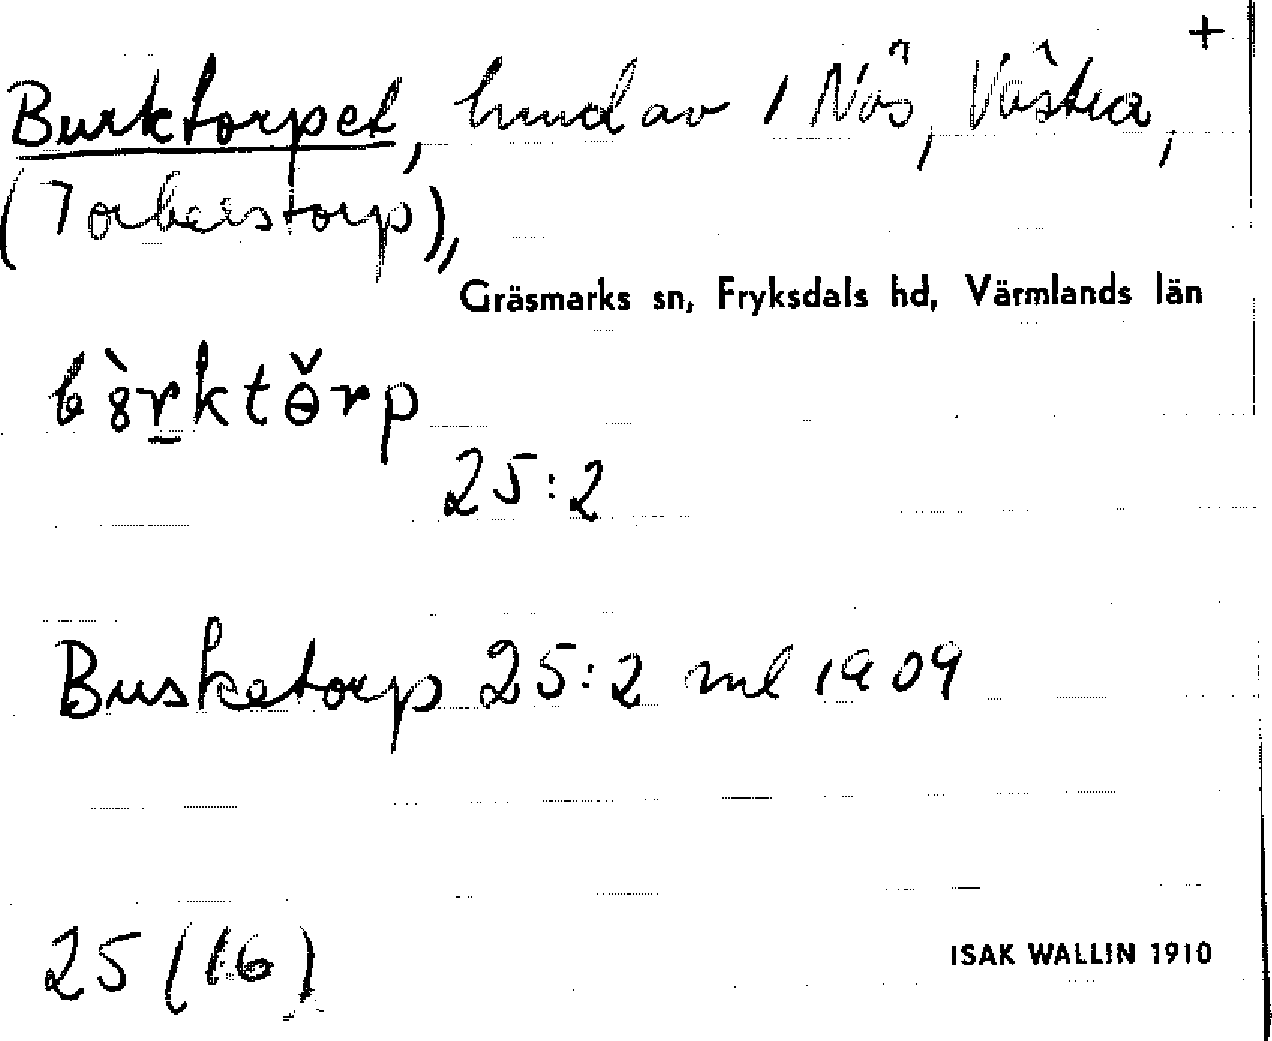 +
Burktorpet, hmd av 1 Nös, Västra,
(Torbeistorp),
Gräsmarks sn, Fryksdals hd, Värmlands län
25:2
Busketorp 25:2 ml 1909
25 (16)
ISAK WALLIN 1910